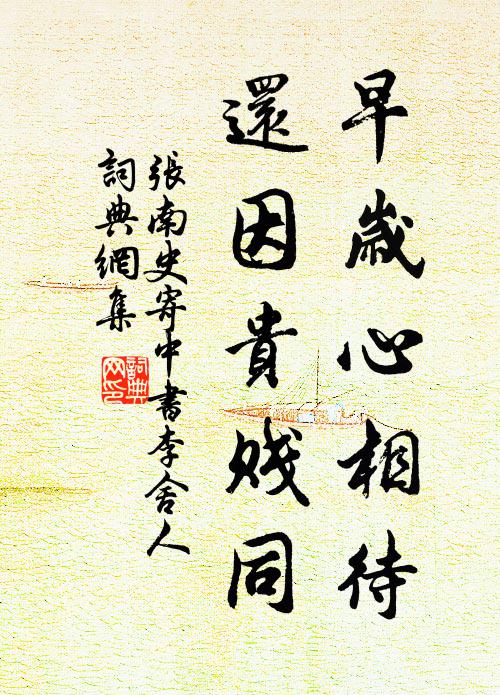 早歲心相待
還因貴賤同
張南史寄中書李舍人
詞典網集
詞典
网印